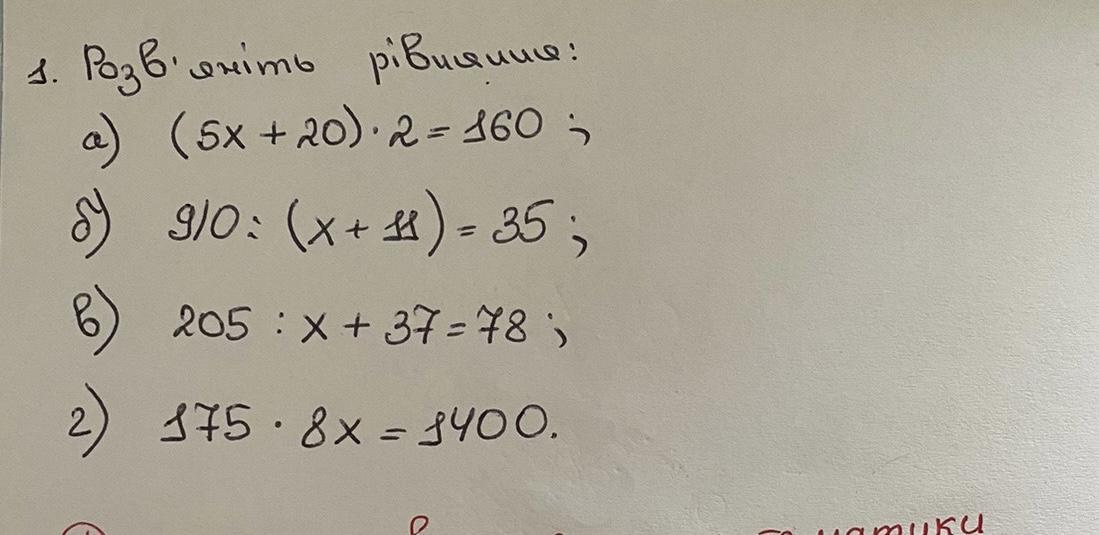 1. Розв'яжіть рівняння:
а) (5x + 20) · 2 = 160 ;
б) 910 : (x + 11) = 35 ;
в) 205 : x + 37 = 78 ;
г) 175 · 8x = 1400.